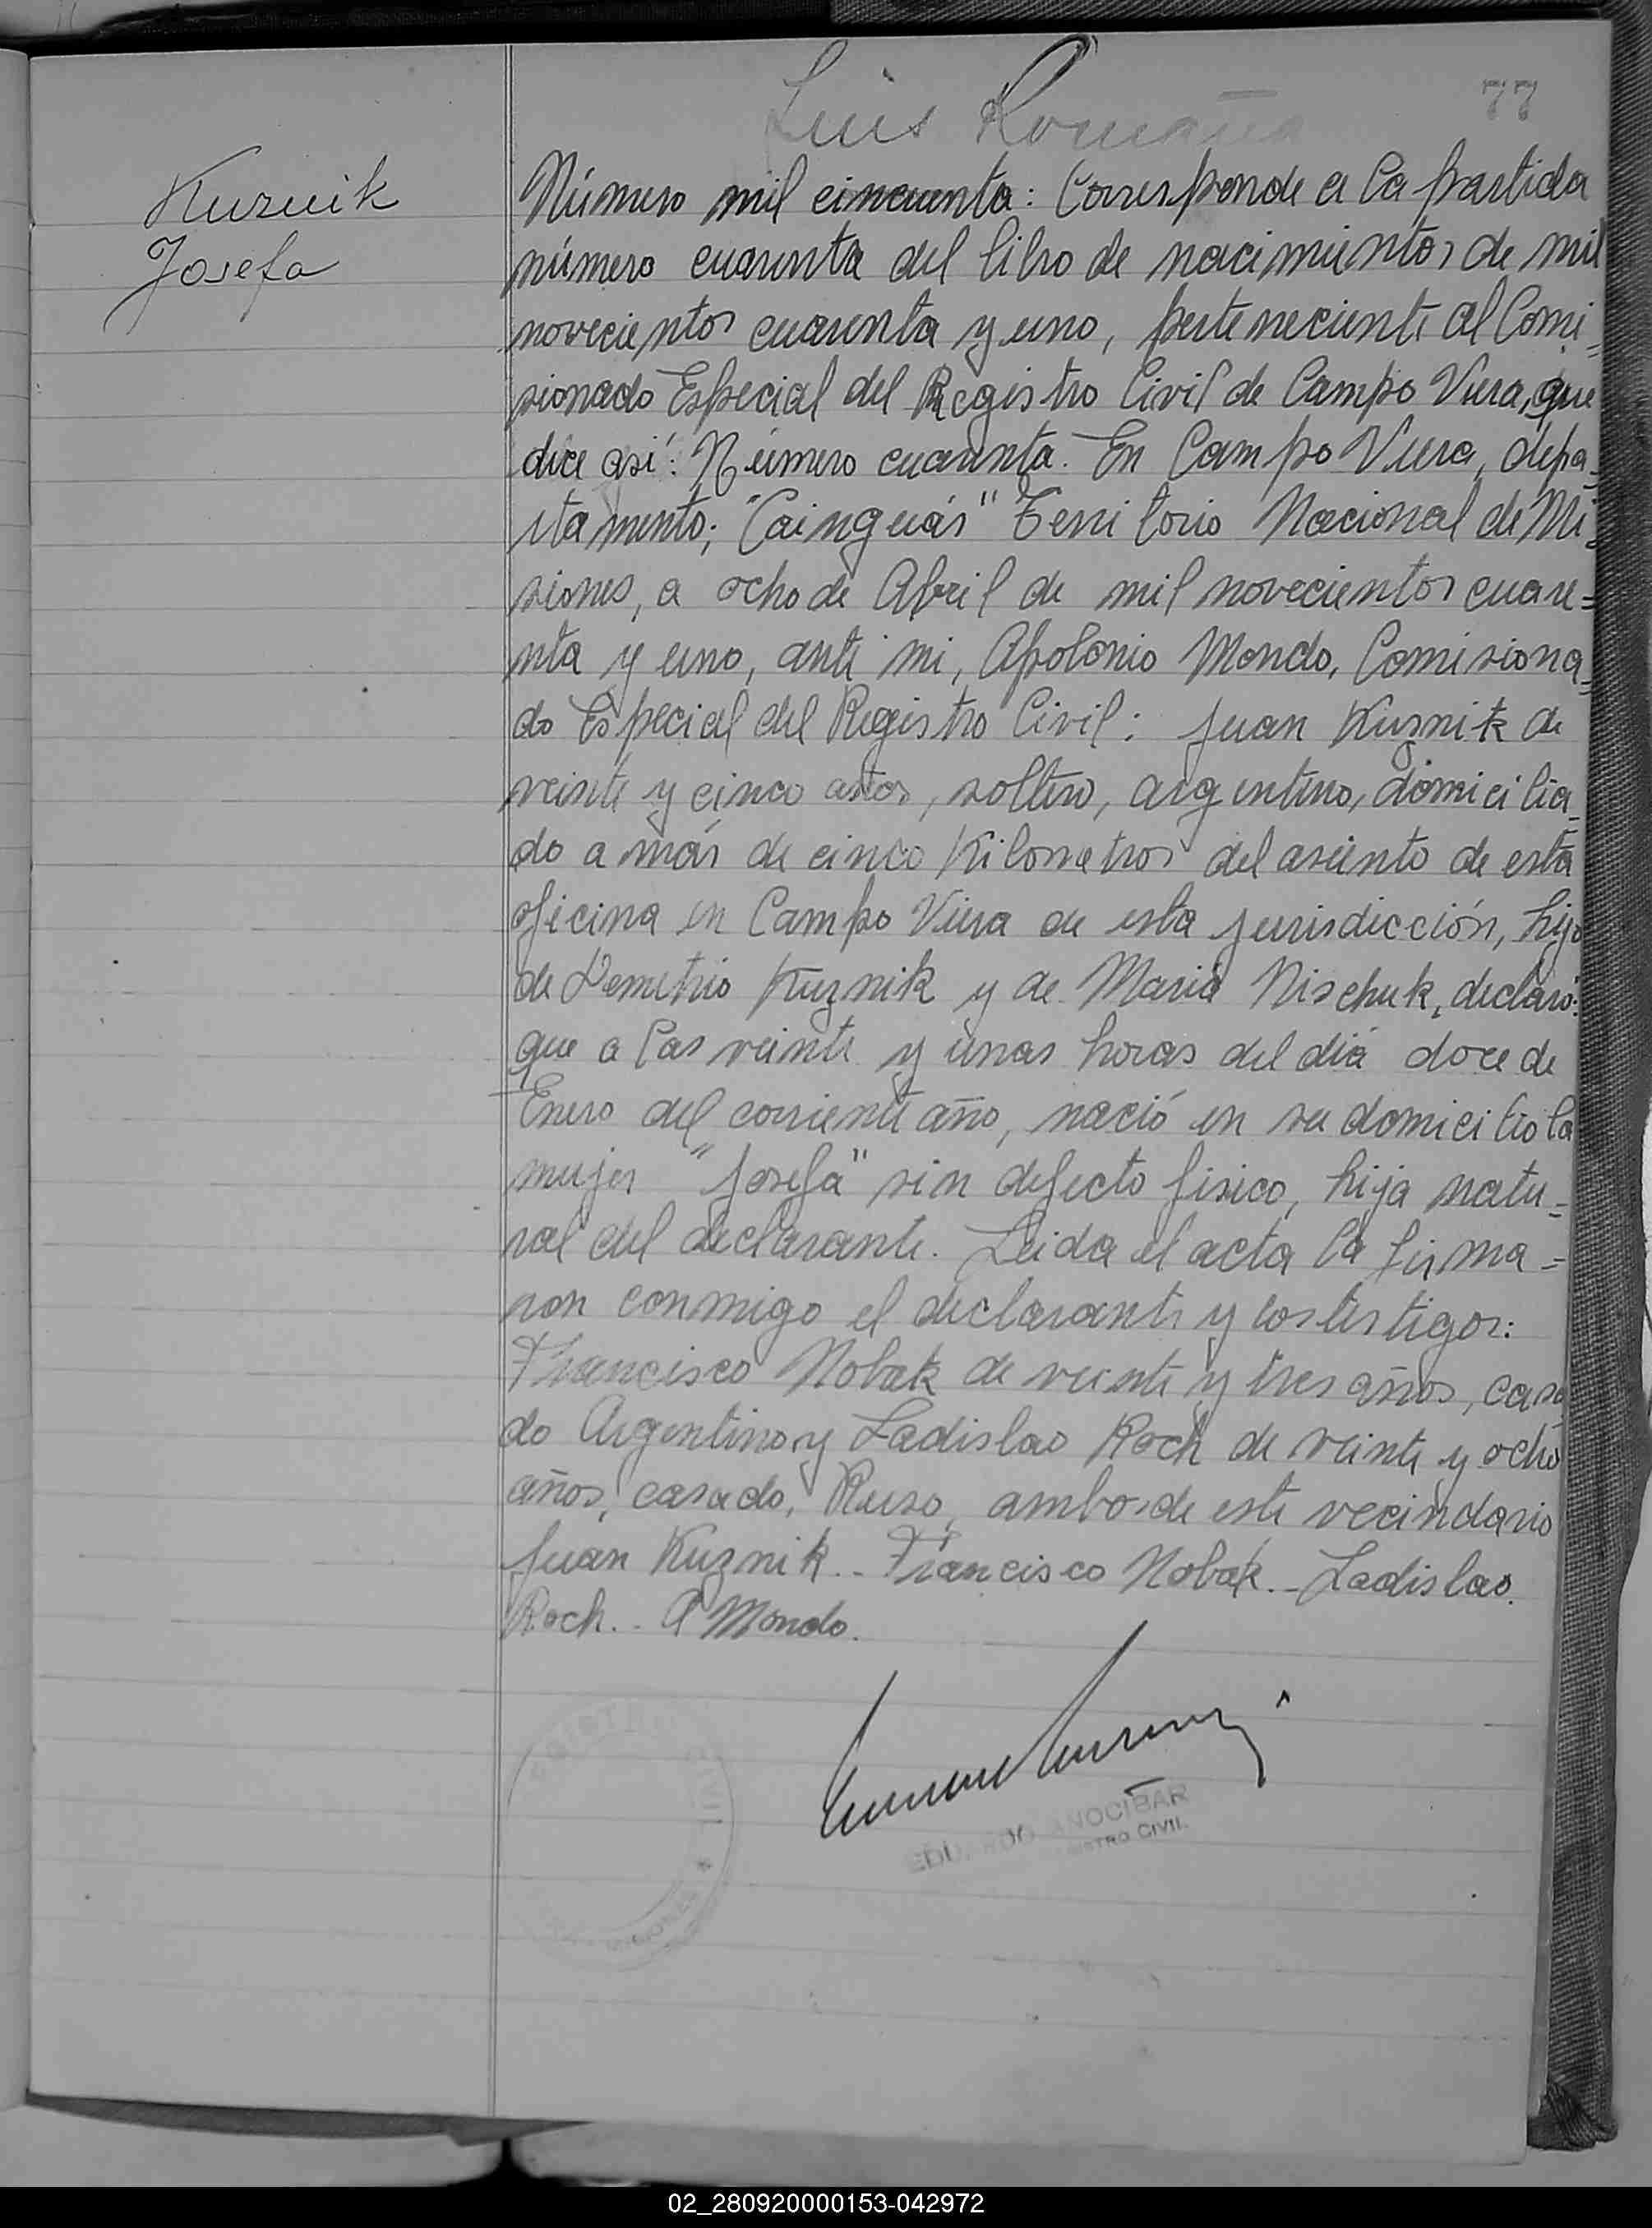 Luis Romaña
77
Kuznik
Josefa
Número mil cincuenta: Corresponde a la partida
número cuarenta del libro de nacimientos de mil
novecientos cuarenta y uno, perteneciente al Comi=
sionado Especial del Registro Civil de Campo Viera, que
dice así: Número cuarenta. En Campo Viera, depa=
rtamento; "Cainguás" Territorio Nacional de Mi=
siones, a ocho de Abril de mil novecientos cuare=
nta y uno, ante mi, Apolonio Mondo, Comisiona=
do Especial del Registro Civil: Juan Kuznik de
veinte y cinco años, soltero, argentino, domicilia=
do a más de cinco Kilometros del asiento de esta
oficina en Campo Viera de esta jurisdicción, hijo
de Demetrio Kuznik y de Maria Nischuk, declaró:
que a las veinte y unas horas del diá doce de
Enero del corriente año, nació en su domicilio la
mujer "Josefa" sin defecto fisico, hija natu=
ral del declarante. Leida el acta la firma=
ron conmigo el declarante y los testigos:
Francisco Nobak de veinte y tres años, casa
do Argentino y Ladislao Roch de veinte y ocho
años, casado, Ruso, ambos de este vecindario
Juan Kuznik.- Francisco Nobak.- Ladislao
Roch.- A Mondo.
EDUARDO ANOCIBAR
CIVIL
MISIONES
02_280920000153-042972